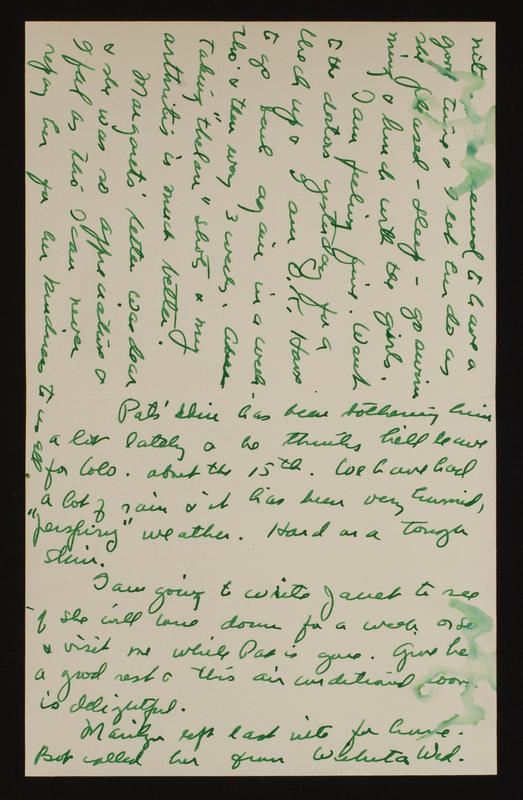 nite seemed to have a
good time & I let her do as
she pleased - sleep - go swim
ming & lunch with the girls.
I am feeling fine. Went
to the doctors yesterday for a
check up & am O.K. Have
to go back again in a week.
this & then every 3 weeks. Am
taking "shots & my
arthritis is much better.
Margaret's letter was dear
& she was so appreciative &
I feel as tho I can never
repay her for her kindness to us all
Pats' skin has been bothering him
a lot lately & he thinks he'll leave
for Colo. about the 15th. We have had
a lot of rain & it has been very humid,
"perspiring" weather. Hard on a tough
skin.
I am going to write Janet to see
if she will come down for a week or so
& visit me while Pat is gone. Give her
a good rest & this air conditioned room
is delightful.
Marilyn left last nite for home.
Bob called her from Wichita Wed.